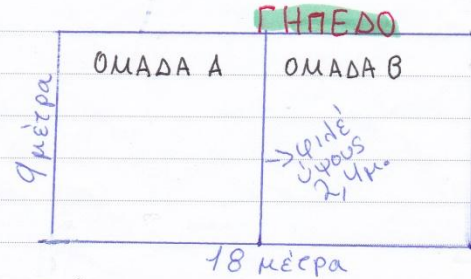 ΓΗΠΕΔΟ
ΟΜΑΔΑ Α
ΟΜΑΔΑ Β
9 μέτρα
→ φιλέ
ύψους
2,4μ.
18 μέτρα